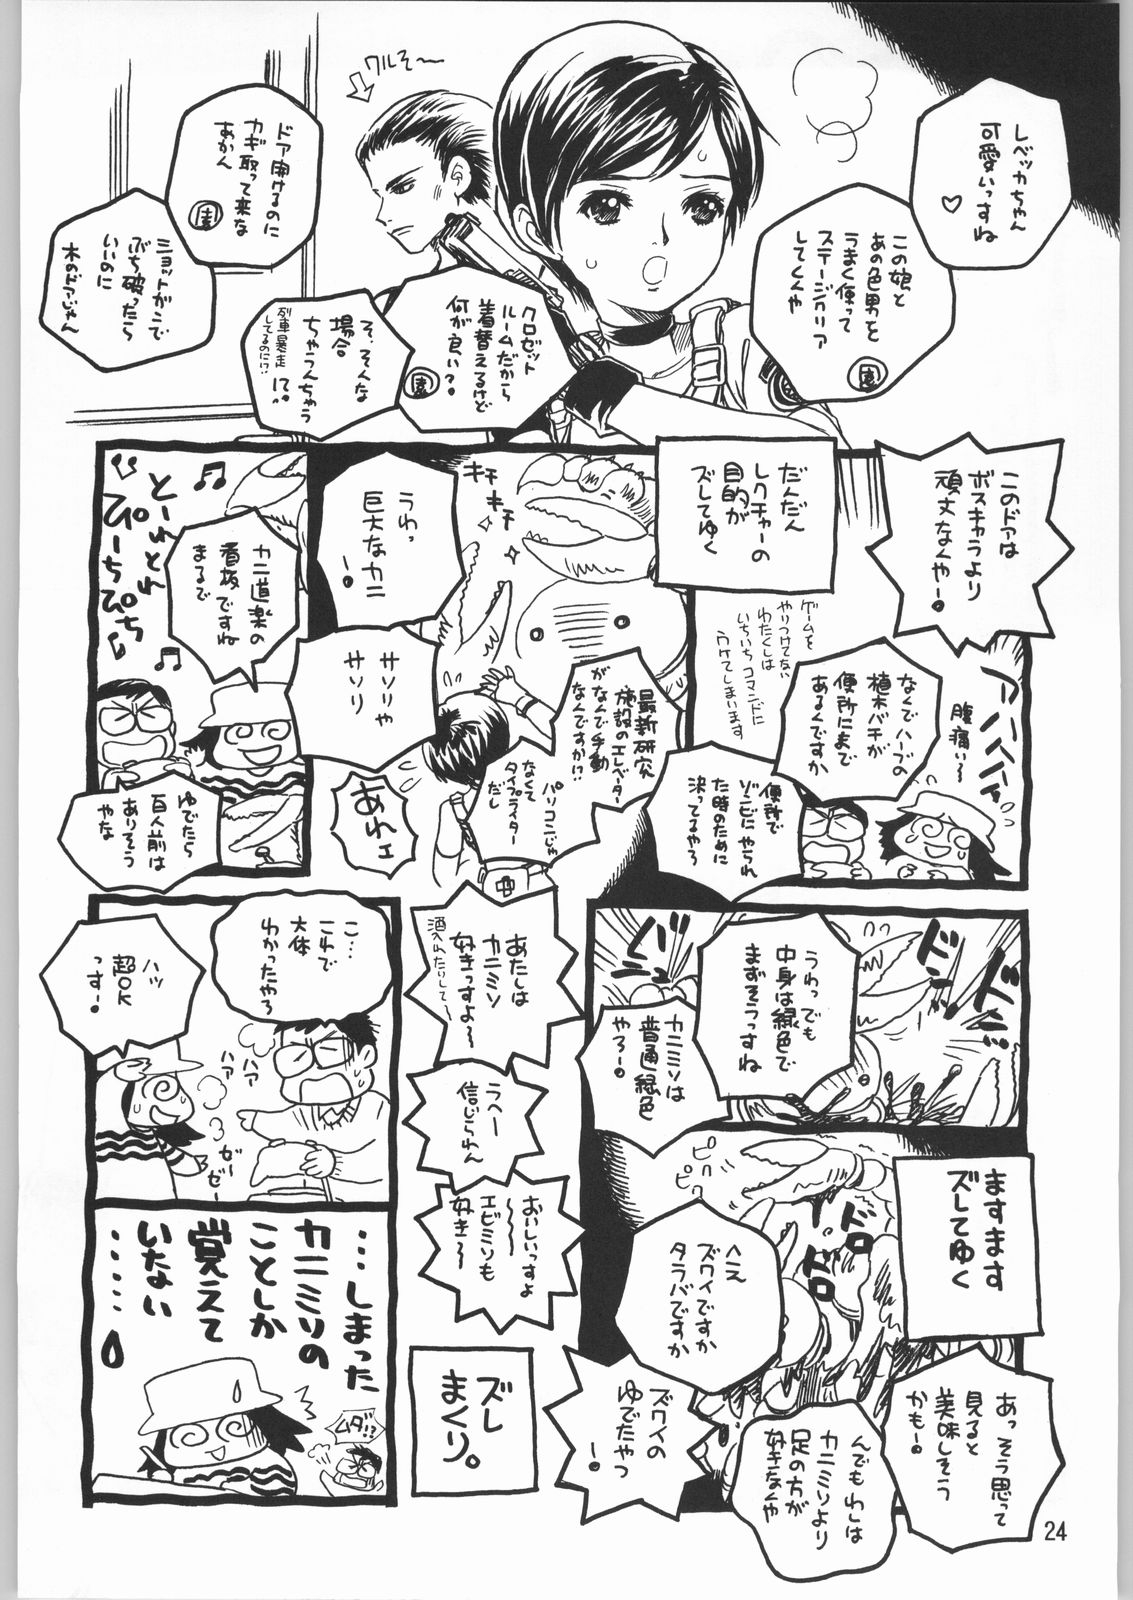 レベッカちゃん
可愛いっすね
♡
この娘と
あの色男を
うまく使って
ステージクリア
してくんや
園
ワルそ〜
クロゼット
ルームだから
着替えるけど
何が良い?
園
そ、そんな
場合
ちゃうんちゃう
に?
列車暴走
してるのに!?
ドア開けるのに
カギ取って来な
あかん
園
ショットガンで
ぶち破ったら
いいのに
木のドアじゃん
このドアは
ボスキャラより
頑丈なんや!
だんだん
レクチャーの
目的が
ズレてゆく
ゲームを
やりつけてない
わたくしは
いちいちコマンドに
ウケてしまいます
アハハハハ
腹痛い〜
なんでハーブの
植木バチが
便所にまで
あるんですか
便所で
ゾンビにやられ
た時のために
決ってるやろ
キチ
キチ
うわっ
巨大なカニ
!
サソリや
サソリ
最新研究
施設のエレベーター
がなんで手動
なんですか!?
パソコンじゃ
なくて
タイプライター
だし
あれェ
とーれとれ
ぴーちぴち
カニ道楽の
看板ですね
まるで
ゆでたら
百人前は
ありそう
やな
ドン
ドーン
うわっでも
中身は緑色で
まずそうっすね
カニミソは
普通緑色
やろー!
あたしは
カニミソ
好きっすよ〜
酒入れたりして〜
うへー
信じらんん
おいしいっすよ
〜〜
エビミソも
好き〜
ますます
ズレてゆく
ピク
ピク
ドロ
ドロ
へえ
ズワイですか
タラバですか
ズワイの
ゆでたやつ
!
あっそう思って
見ると
美味しそう
かも!
んでもわしは
カニミソより
足の方が
好きなんや
ズレ
まくり。
こ…
これで
大体
わかったやろ
ハッ
超OK
っす!
ハァ
ハァ
ゼーゼー
…しまった
カニミソの
ことしか
覚えて
いない
……
ムダ!?
24